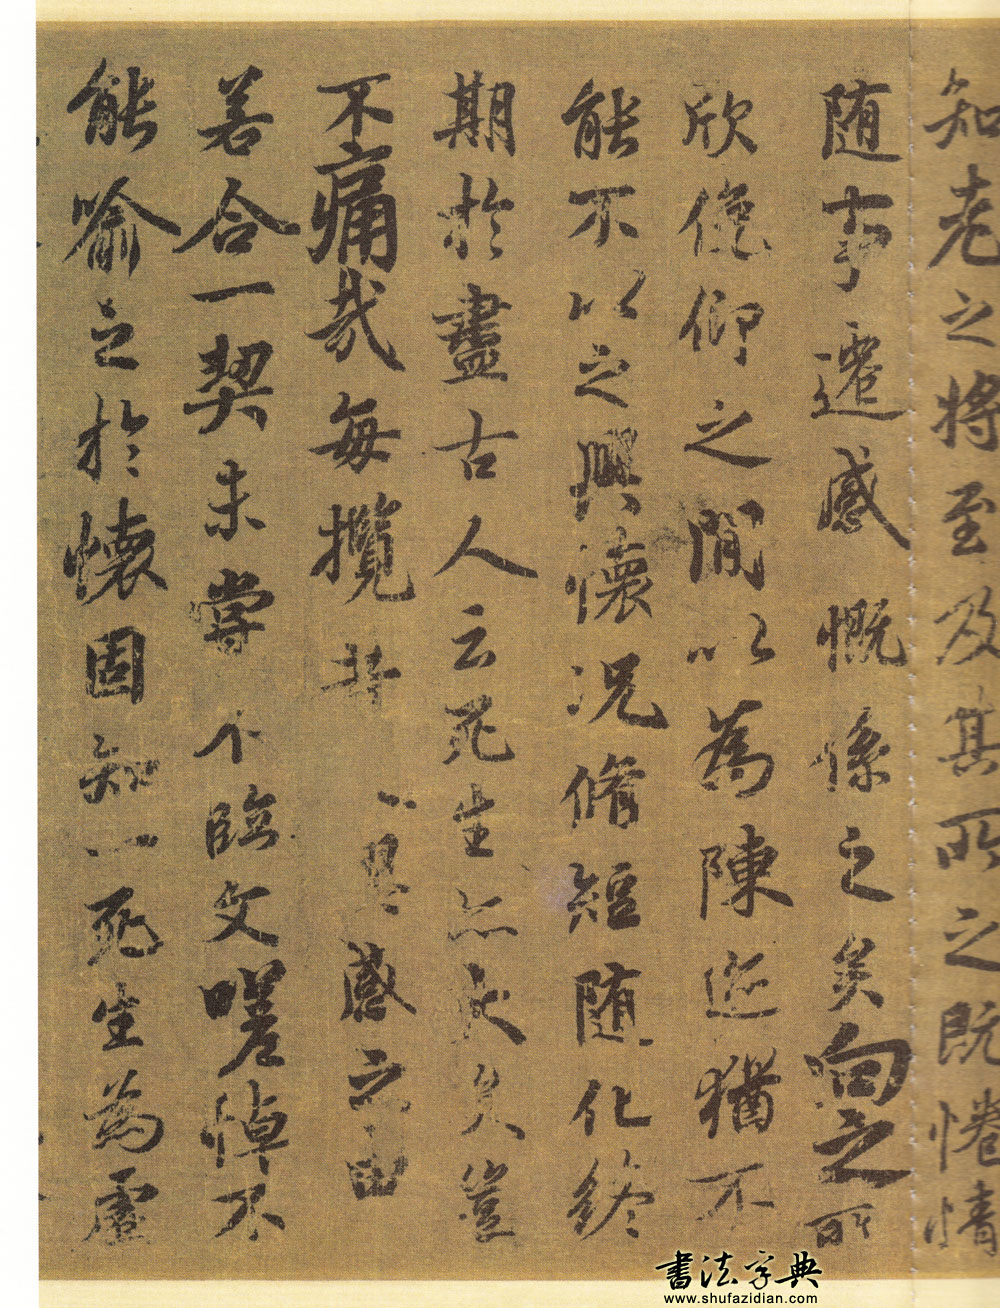 知老之將至及其所之既惓情
随事遷感慨係之矣向之所
欣俛仰之閒以為陳迹猶不
能不以之興懷況脩短随化終
期於盡古人云死生亦大矣豈
不痛哉每攬昔人興感之由
若合一契未嘗不臨文嗟悼不
能喻之於懷固知一死生為虛
書法字典
www.shufazidian.com